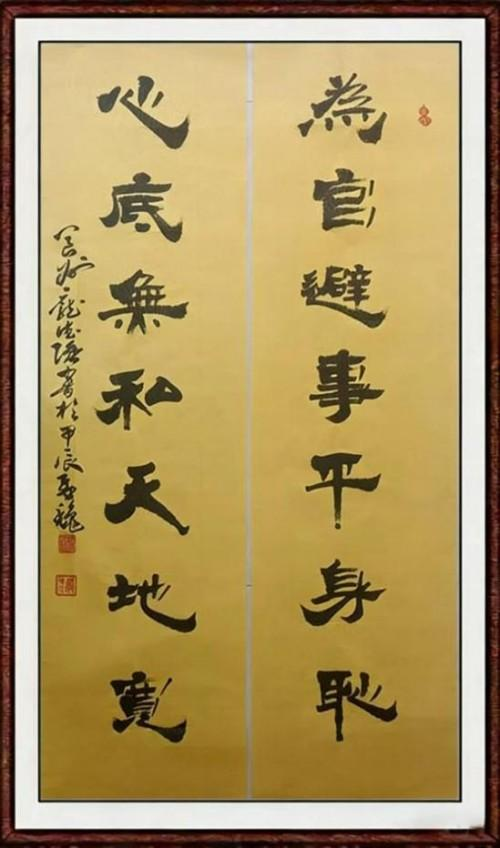 為官避事平身耻
心底無私天地寬
書於甲辰